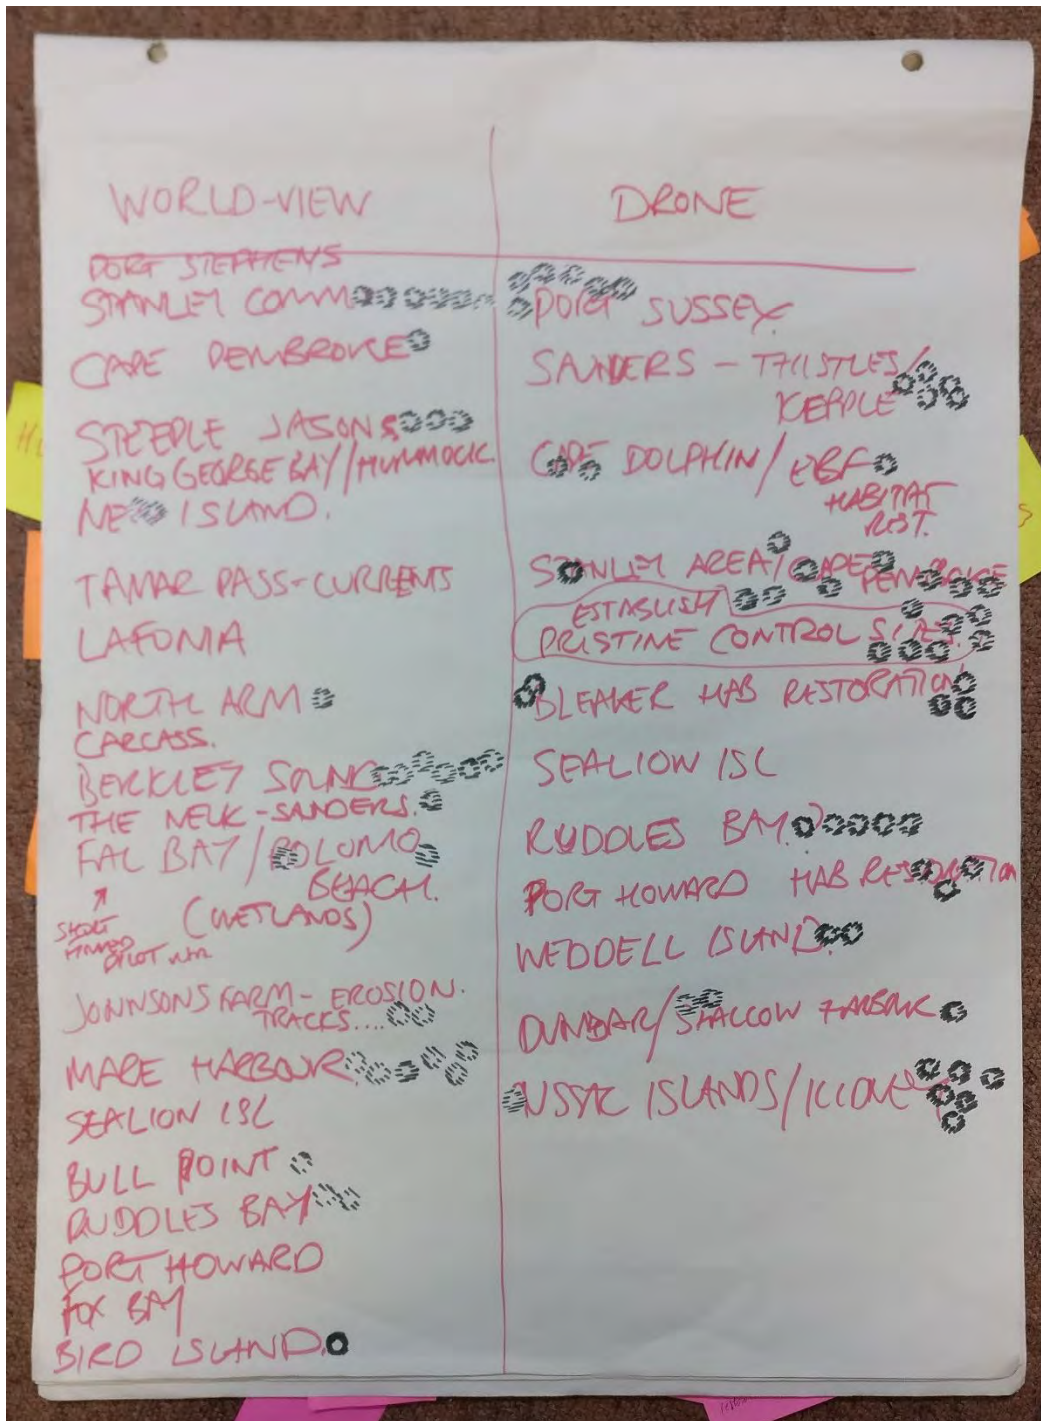 WORLD-VIEW
PORT STEPHENS
STANLEY COMM
CAPE PEMBROKE
STEEPLE JASONS
KING GEORGE BAY/HUMMOCK
NEW ISLAND.
TAMAR PASS-CURRENTS
LAFONIA
NORTH ARM
CARCASS.
BERKLEY SOUND
THE NECK-SANDERS.
FAL BAY/
BEACH.
(WETLANDS)
SHORT
FINNED
PILOT
JOHNSONS FARM- EROSION.
TRACKS....
MARE HARBOUR
SEALION ISL
BULL POINT
RUDDLES BAY
PORT HOWARD
FOX BAY
BIRD ISLAND.
DRONE
PORT SUSSEX
SANDERS - THISTLES/
KEPPLE
CAPE DOLPHIN/ EBF
HABITAT
REST.
STANLEY AREA/CAPE PEMBROKE
ESTABLISH
PRISTINE CONTROL SITES.
BLEAKER HAB RESTORATION
SEALION ISL
RUDDLES BAY.
PORT HOWARD HAB RESTORATION
WEDDELL ISLAND.
DUNBAR/SHALLOW HARBOUR
ISLANDS/